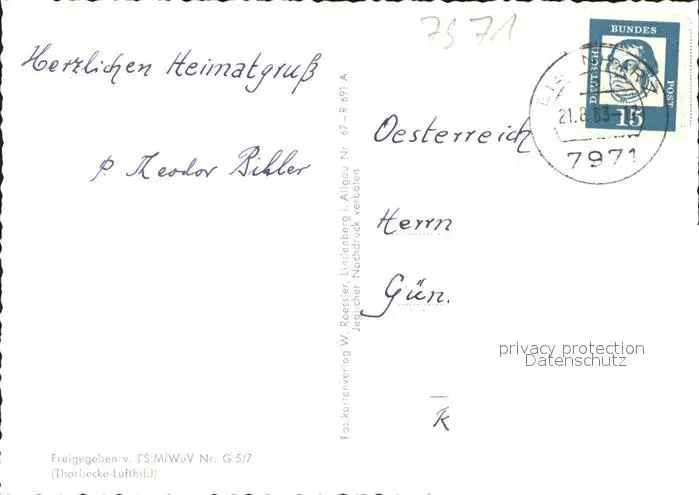 7971
Herzlichen Heimatgruß
P. Theodor Bihler
BUNDES
DEUTSCHE
POST
15
21.8.63
7971
Oesterreich
Herrn
Gün.
privacy protection
Datenschutz
K
Postkartenverlag W. Roessler, Lindenberg i. Allgäu Nr. 67-R 691 A
Jeglicher Nachdruck verboten
Freigegeben v. Nr. G 5/7
(Thorbecke-Luftbild)